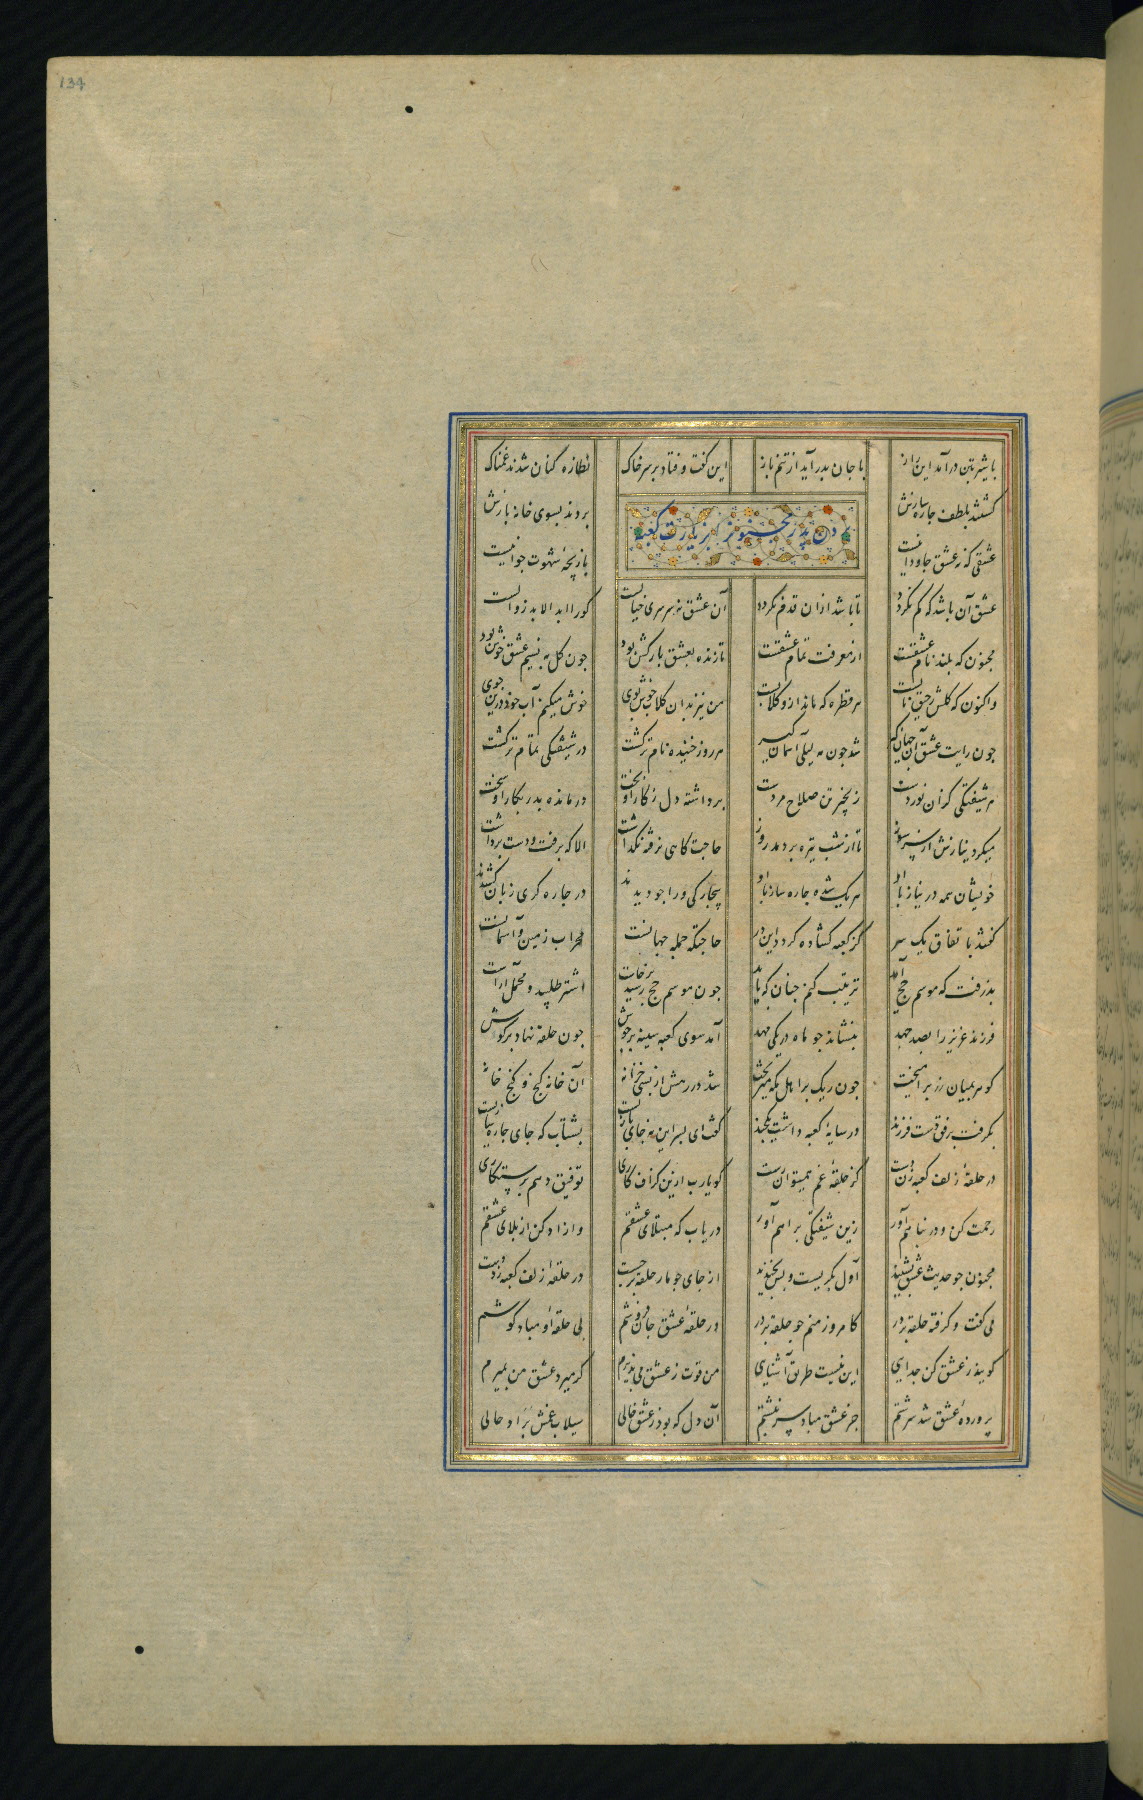 با شیر بتن درآمد این راز با جان بدر آید از تنم باز این گفت و فتاد بر سر خاک نظاره کنان شدند غمناک
گشتند بلطف چاره سازش بردند بسوی خانه بازش
بردن پدر مجنون را بزیارت کعبه
عشقی که نه عشق جاودانیست بازیچهٔ شهوت جوانیست
عشق آن باشد که کم نگردد تا باشد ازان قدم نگردد آن عشق نه سرسری خیالست کورا ابد الابد زوالست
مجنون که بلند نام عشقست از معرفت تمام عشقست تا زنده بعشق بارکش بود چون گل به نسیم عشق خوش بود
واکنون که گلش رحیق نابست هر قطره که ماند ازو گلابست من نیز بدان گلاب خوش بوی خوش میکنم آب خود درین جوی
چون رایت عشق آن جهان گیر شد چون مه لیلی آسمان گیر هر روز خنیده نام تر گشت در شیفتگی تمام تر گشت
هر شیفتگی کزان نوردست زنجیر تن صلاح مردست برداشته دل ز کار او بخت درمانده پدر بکار او سخت
میکرد نیایش از سر سوز تا از شب تیره بردمد روز حاجت گاهی نرفته نگذاشت الا که برفت و دست برداشت
خویشان همه در نیاز با او هر یک شده چاره ساز با او بیچارگی ورا چو دیدند در چاره گری زبان کشیدند
گفتند باتفاق یک سر کز کعبه گشاده گردد این در حاجتگه جمله جهانست محراب زمین و آسمانست
پذرفت که موسم حج آید ترتیب کنم چنان که باید چون موسم حج رسید برخاست اشتر طلبید و محمل آراست
فرزند عزیز را بصد جهد بنشاند چو ماه در یکی مهد آمد سوی کعبه سینه پر جوش چون حلقه نهاد بر گوش
گوهر بمیان زر برآمیخت چون ریگ بر اهل مکه میریخت شد در رهش از بسی خزانه آن خانه گنج و گنج خانه
بگرفت برفق دست فرزند در سایهٔ کعبه داشت یکچند گفت ای پسر این نه جای بازیست بشتاب که جای چاره سازیست
در حلقهٔ زلف کعبه زن دست کز حلقهٔ غم همیتوان رست گو یارب ازین گزاف کاری توفیق دهم برستکاری
رحمت کن و در پناهم آور زین شیفتگی براهم آور دریاب که مبتلای عشقم و ازاد کن از بلای عشقم
مجنون چو حدیث عشق بشنید اول بگریست و پس بخندید از جای چو مار حلقه برجست در حلقهٔ زلف کعبه زد دست
می گفت و گرفته حلقه در بر کامروز منم چو حلقه بر در در حلقهٔ عشق جان فروشم بی حلقهٔ او مباد گوشم
گویند ز عشق کن جدایی این نیست طریق آشنایی من قوت ز عشق می پذیرم گر میرد عشق من بمیرم
پروردهٔ عشق شد سرشتم جز عشق مباد سرنبشتم آن دل که بود ز عشق خالی سیلاب غمش براد حالی
134